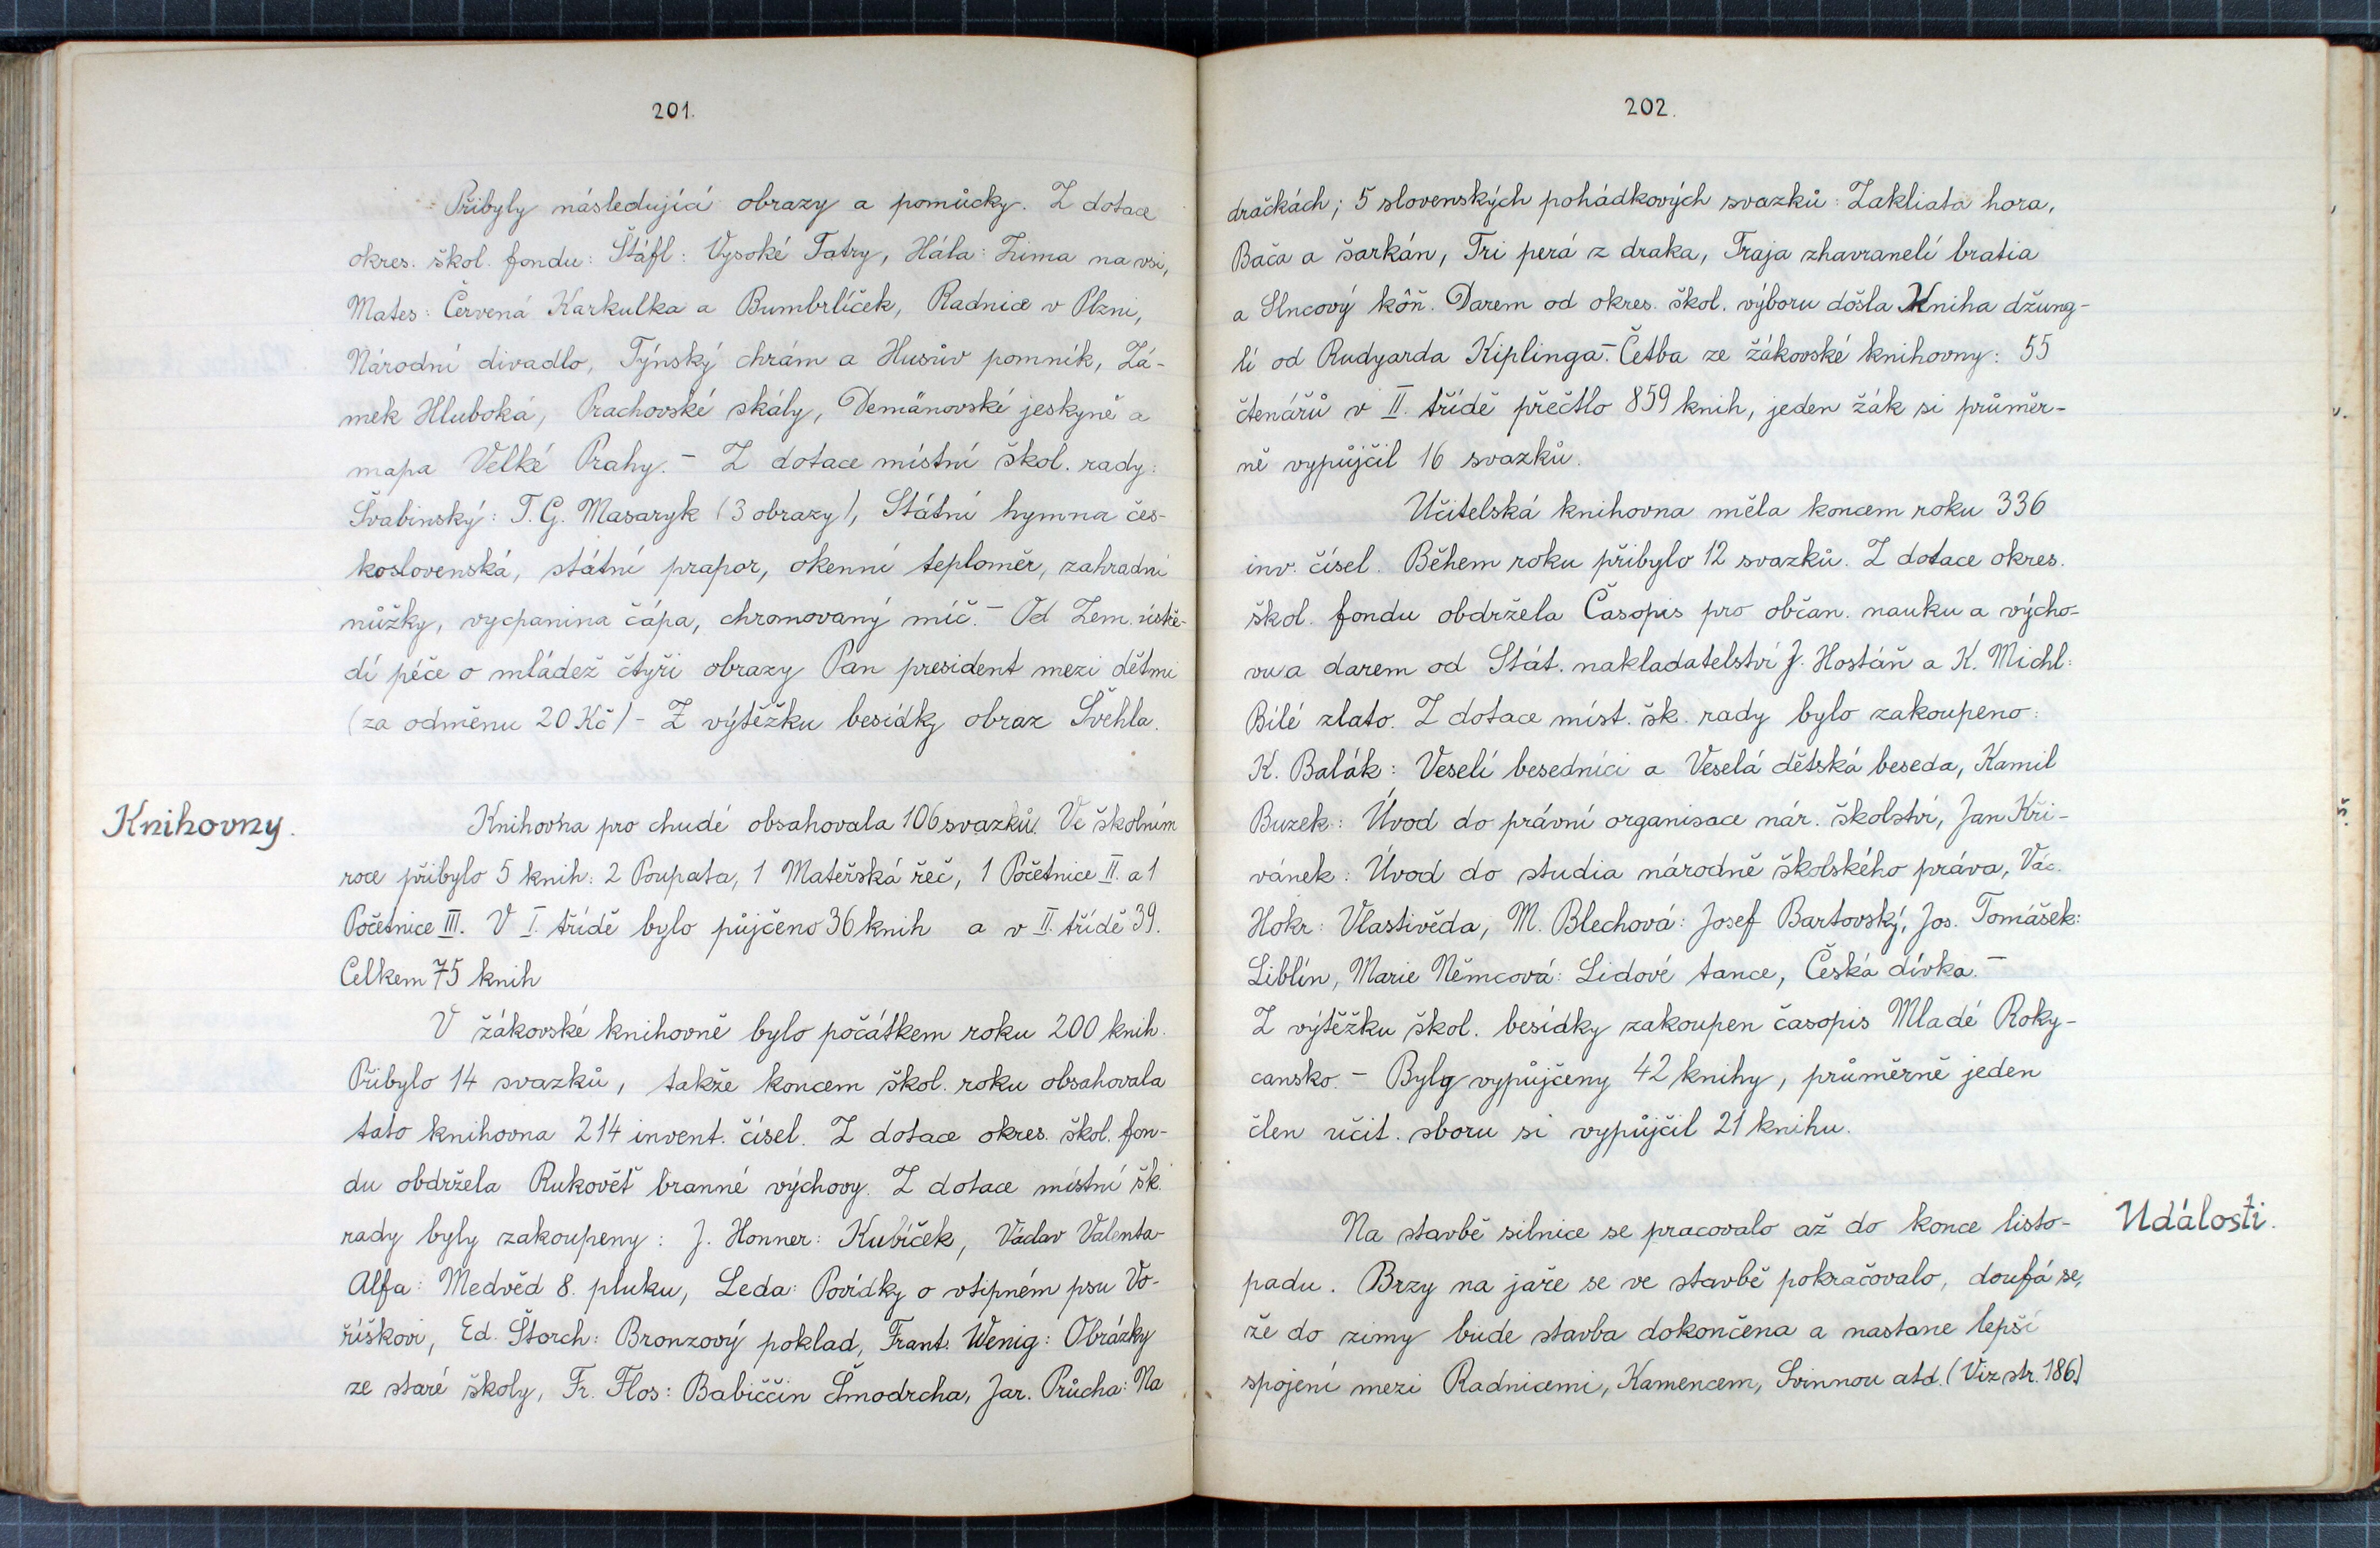 201.
Přibyly následující obrazy a pomůcky. Z dotace
okres. škol. fondu: Štáfl: Vysoké Tatry, Hála: Zima na vsi,
Mates: Červená Karkulka a Bumbrlíček, Radnice v Plzni,
Národní divadlo, Týnský chrám a Husův pomník, Zá-
mek Hluboká, Prachovské skály, Demänovské jeskyně a
mapa Velké Prahy. – Z dotace místní škol. rady:
Švabinský: T. G. Masaryk (3 obrazy), Státní hymna čes-
koslovenská, státní prapor, okenní teploměr, zahradní
nůžky, vycpanina čápa, chromovaný míč. – Od Zem. ústře-
dí péče o mládež čtyři obrazy Pan president mezi dětmi
(za odměnu 20 Kč) – Z výtěžku besídky obraz Švehla.
Knihovny.
Knihovna pro chudé obsahovala 106 svazků. Ve školním
roce přibylo 5 knih: 2 Poupata, 1 Mateřská řeč, 1 Početnice II. a 1
Početnice III. V I. třídě bylo půjčeno 36 knih a v II. třídě 39.
Celkem 75 knih
V žákovské knihovně bylo počátkem roku 200 knih.
Přibylo 14 svazků, takže koncem škol. roku obsahovala
tato knihovna 214 invent. čísel. Z dotace okres. škol. fon-
du obdržela Rukověť branné výchovy. Z dotace místní šk.
rady byly zakoupeny: J. Honner: Kubíček, Václav Valenta-
Alfa: Medvěd 8. pluku, Leda: Povídky o vtipném psu Vo-
říškovi, Ed. Štorch: Bronzový poklad, Frant. Wenig: Obrázky
ze staré školy, Fr. Flos: Babiččin Šmodrcha, Jar. Průcha: Na
202.
dračkách; 5 slovenských pohádkových svazků: Zakliata hora,
Bača a šarkán, Tri perá z draka, Traja zhavranelí bratia
a Slncový kôň. Darem od okres. škol. výboru došla Kniha džung-
lí od Rudyarda Kiplinga. – Četba ze žákovské knihovny: 55
čtenářů v II. třídě přečtlo 859 knih, jeden žák si průměr-
ně vypůjčil 16 svazků.
Učitelská knihovna měla koncem roku 336
inv. čísel. Během roku přibylo 12 svazků. Z dotace okres.
škol. fondu obdržela Časopis pro občan. nauku a výcho-
vu a darem od Stát. nakladatelství J. Hostáň a K. Michl:
Bílé zlato. Z dotace míst. šk. rady bylo zakoupeno:
K. Balák: Veselí besedníci a Veselá dětská beseda, Kamil
Buzek: Úvod do právní organisace nár. školství, Jan Kři-
vánek: Úvod do studia národně školského práva, Vác.
Hokr: Vlastivěda, M. Blechová: Josef Bartovský, Jos. Tomášek:
Liblín, Marie Němcová: Lidové tance, Česká dívka. –
Z výtěžku škol. besídky zakoupen časopis Mladé Roky-
cansko. – Byly vypůjčeny 42 knihy, průměrně jeden
člen učit. sboru si vypůjčil 21 knihu.
Události.
Na stavbě silnice se pracovalo až do konce listo-
padu. Brzy na jaře se ve stavbě pokračovalo, doufá se,
že do zimy bude stavba dokončena a nastane lepší
spojení mezi Radnicemi, Kamencem, Svinnou atd. (Viz str. 186.)